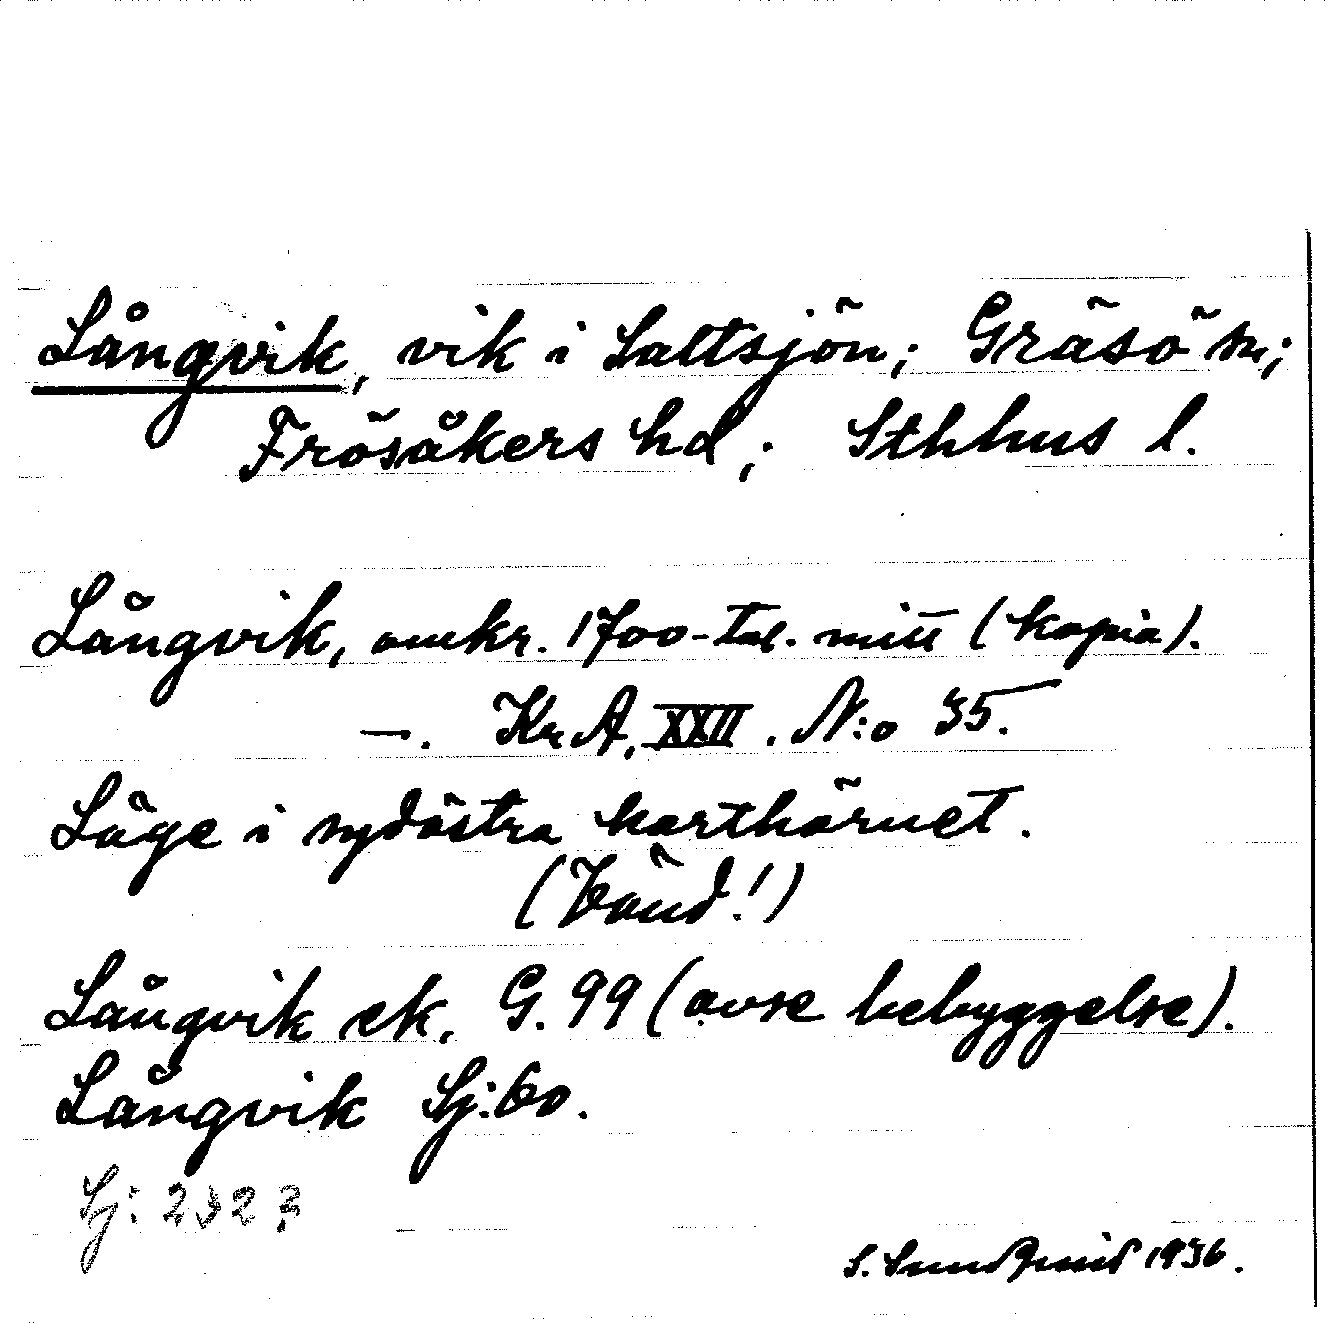 Långvik, vik i Saltsjön; Gräsö sn;
Frösåkers hd; Sthlms l.
Långvik, omkr. 1700-tal. mitt (kopia).
—. Kr.A. XXII. N:o 35.
Läge i sydöstra karthörnet.
(Vänd!)
Långvik ek. G. 99 (avse bebyggelse).
Långvik Sj: 60.
Sj: 2323
S. Sundqvist 1936.